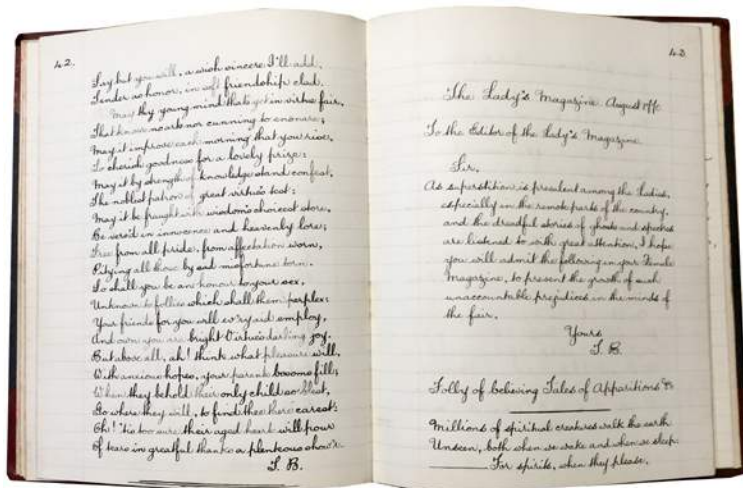 42.
Say but you will, a wish sincere I'll add.
Tender as honor, in soft friendship clad.
May thy young mind that's yet in virtue fair,
That knows no arts nor cunning to ensnare;
May it improve each morning that you rise,
To cherish goodness for a lovely prize:
May it by strength of knowledge stand confest,
The noblest patron of great virtue's test:
May it be fraught with wisdom's choicest store,
Be vers'd in innocence and heavenly lore;
Free from all pride, from affectation worn,
Pitying all those by sad misfortune torn.
So shall you be an honour to your sex,
Unknown to follies which shall them perplex:
Your friends for you will ev'ry aid employ,
And own you are bright Virtue's darling joy.
But above all, ah! think what pleasure will,
With anxious hopes, your parents bosoms fill;
When they behold their only child so blest,
Go where they will, to find thee there carest:
Oh! 'tis too sure their aged heart will pour
Of tears in greatful thanks a plenteous show'r.
T. B.
43.
The Lady's Magazine. August
To the Editor of the Lady's Magazine
Sir,
As superstition is prevalent among the ladies,
especially in the remote parts of the country,
and the dreadful stories of ghosts and spectres
are listened to with great attention, I hope
you will admit the following in your Female
Magazine, to prevent the growth of such
unaccountable prejudices in the minds of
the fair.
Yours
T. B.
Folly of believing Tales of Apparitions &c
Millions of spiritual creatures walk the earth
Unseen, both when we wake and when we sleep:
For spirits, when they please,